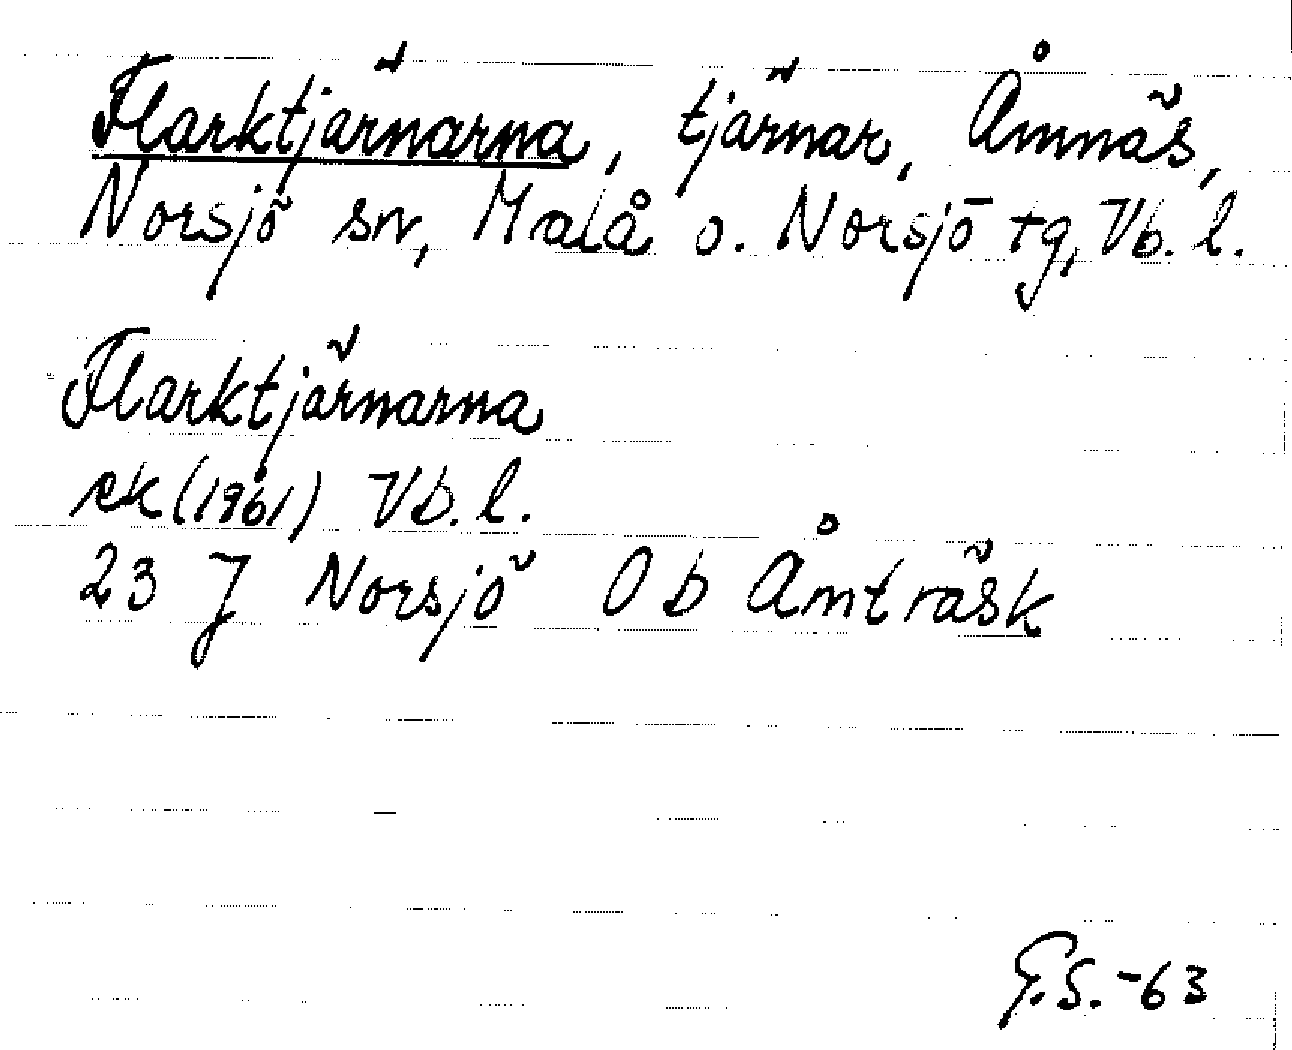 Flarktjärnarna, tjärnar, Åmnäs,
Norsjö sn, Malå o. Norsjö tg, Vb. l.
Flarktjärnarna
ek (1961) Vb. l.
23 J Norsjö 0 b Åmträsk
G.S. -63